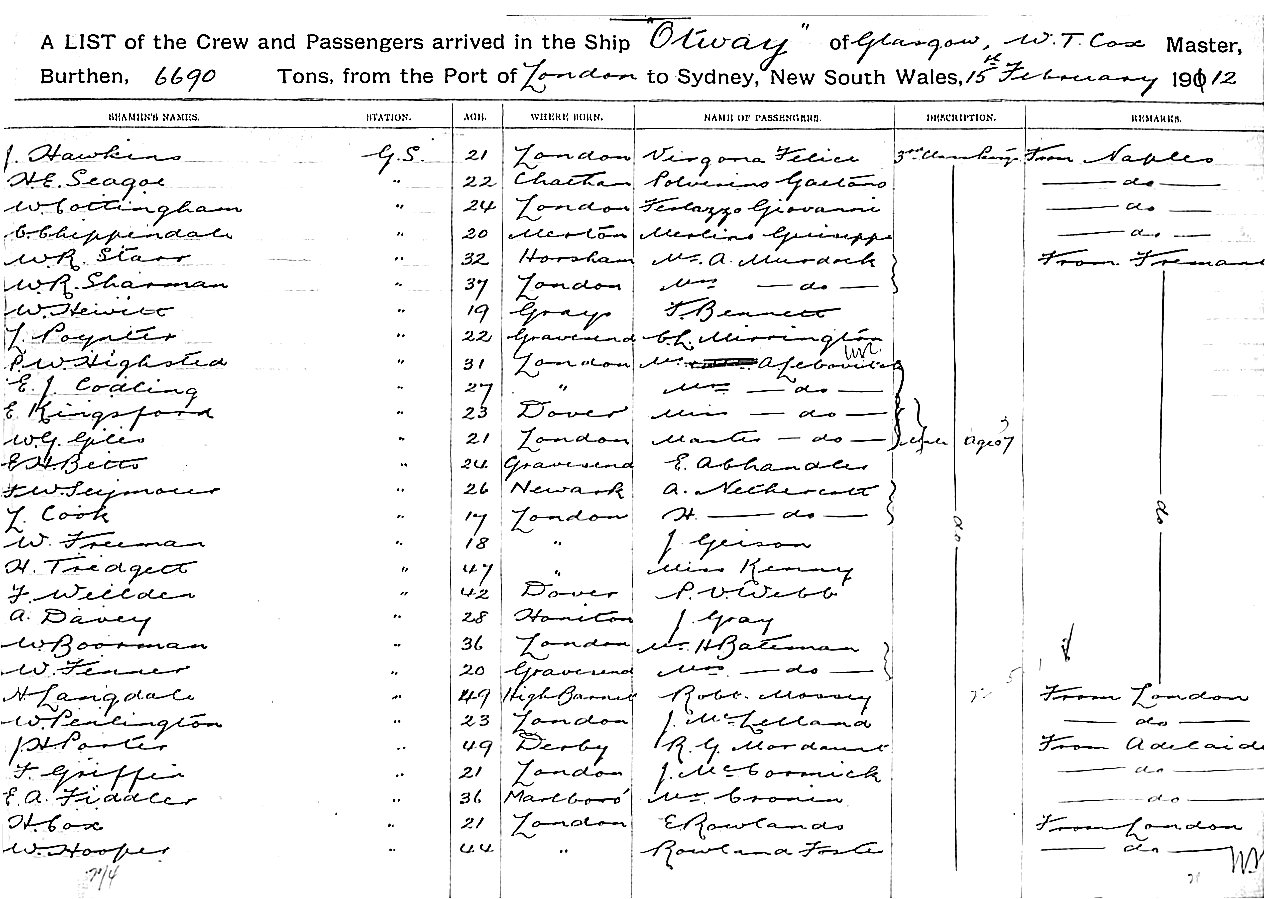 A LIST of the Crew and Passengers arrived in the Ship "Otway" of Glasgow, W. T. Cox Master,
Burthen, 6690 Tons, from the Port of London to Sydney, New South Wales, 15th February 1912
SEAMEN'S NAMES. STATION. AGE. WHERE BORN. NAME OF PASSENGERS. DESCRIPTION. REMARKS.
J. Hawkins G.S. 21 London Virgona Felice 3rd Class From Naples
H.E. Seagoe " 22 Chatham Polverino Gaetano — do —
W. Cottingham " 24 London Giovanni — do —
C. Chippendale " 20 Merton Merlino Guiseppe — do —
W.R. Starr " 32 Horsham Mr. A. Murdock From
W.R. Sharman " 37 London Mrs — do —
W. Hewitt " 19 Grays F. Bennett
L. Poynter " 22 Gravesend C.L. Mirrington
P.W. Highsted " 31 London Mr. A Lebovitch
E. J. Codling " 27 " Mrs — do —
E Kingsford " 23 Dover Miss — do — 3
W.G. Giles " 21 London Master — do — aged 7
E H Betts " 24 Gravesend E. A Chandler
F.W. Seymour " 26 Newark A. Nethercott
L. Cook " 17 London H. — do — do do
W. Freeman " 18 " J. Geison
H. Tredgett " 47 " Miss Kenny
F. Willden " 42 Dover P. V. Webb
A. Davey " 28 Honiton J. Gray
W Boorman " 36 London Mr. H Bateman
W. Fenner " 20 Gravesend Mrs — do —
H Langdale " 49 High Barnet Robt. Massey From London
W. Penlington " 23 London J. McLelland — do —
J H Porter " 49 Derby R. G. Mordaunt From Adelaide
F. Griffin " 21 London J. McCormick — do —
E. A. Fiddler " 36 Marlboro' Mr. Cronin — do —
H. Cox " 21 London E Rowlands From London
W. Hooper " 44 " Rowland Foster — do —